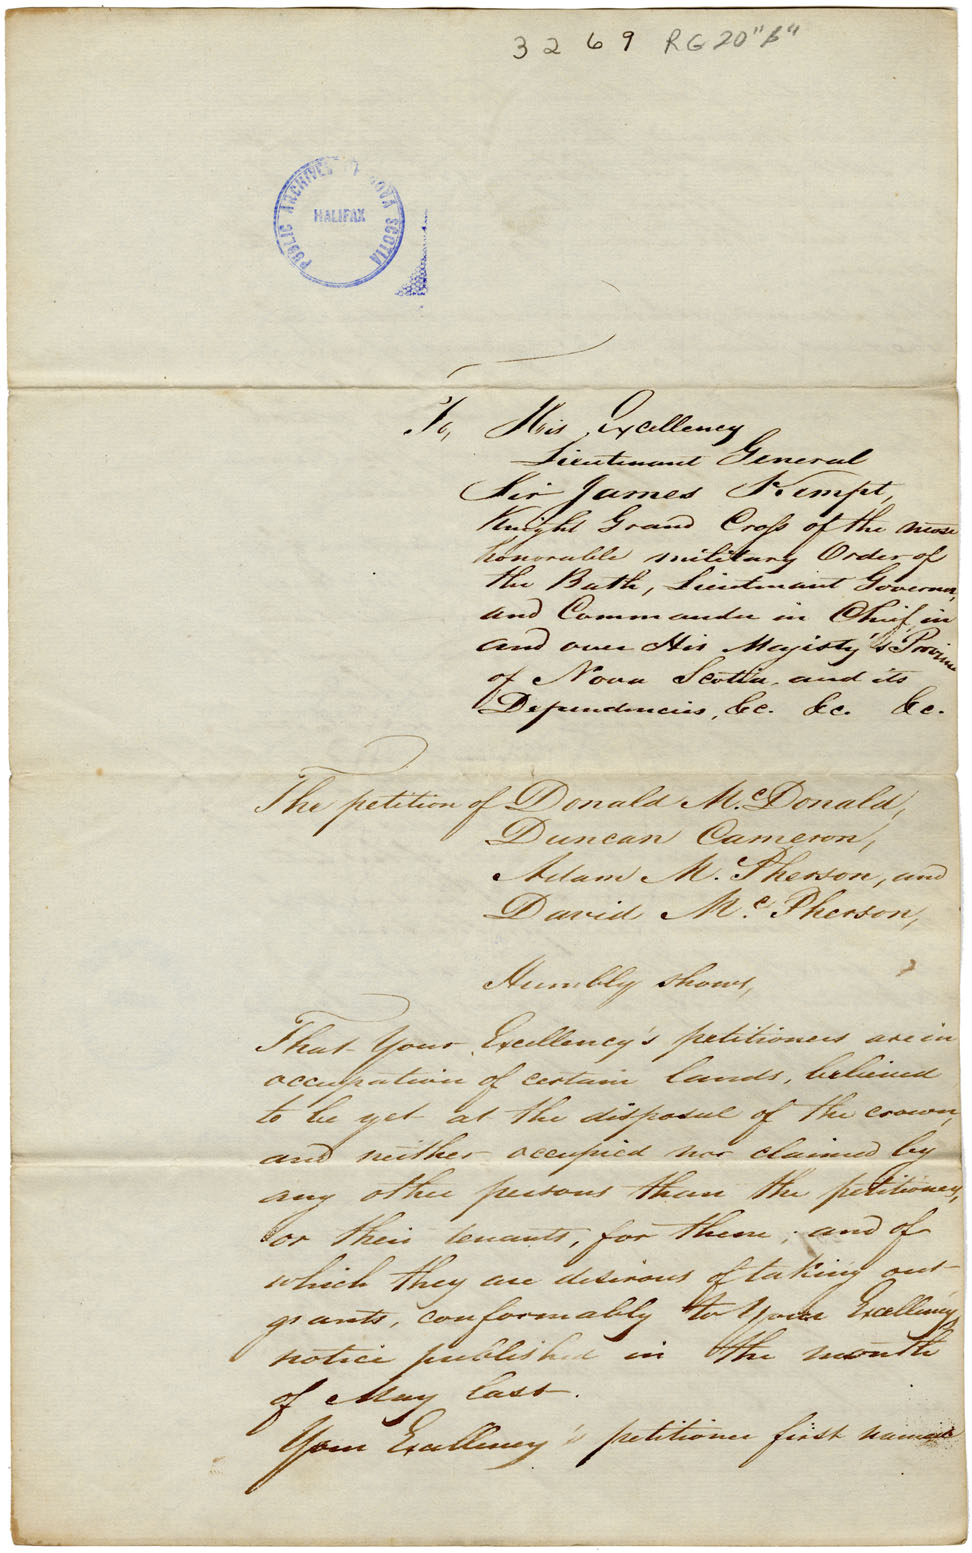 3269 RG 20 "B"
PUBLIC ARCHIVES OF NOVA SCOTIA
HALIFAX
To, His Excellency
Lieutenant General
Sir James Kempt,
Knight Grand Cross of the most
honorable military Order of
the Bath, Lieutenant Governor,
and Commander in Chief, in
and over His Majesty's Province
of Nova Scotia, and its
Dependencies, &c. &c. &c.
The petition of Donald McDonald,
Duncan Cameron,
Adam McPherson, and
David McPherson,
Humbly shows,
That Your Excellency's petitioners are in
occupation of certain lands, believed
to be yet at the disposal of the crown,
and neither occupied nor claimed by
any other persons than the petitioners,
or their tenants, for them; and of
which they are desirous of taking out
grants, conformably to Your Excellency's
notice published in the month
of May last.
Your Excellency's petitioner first named